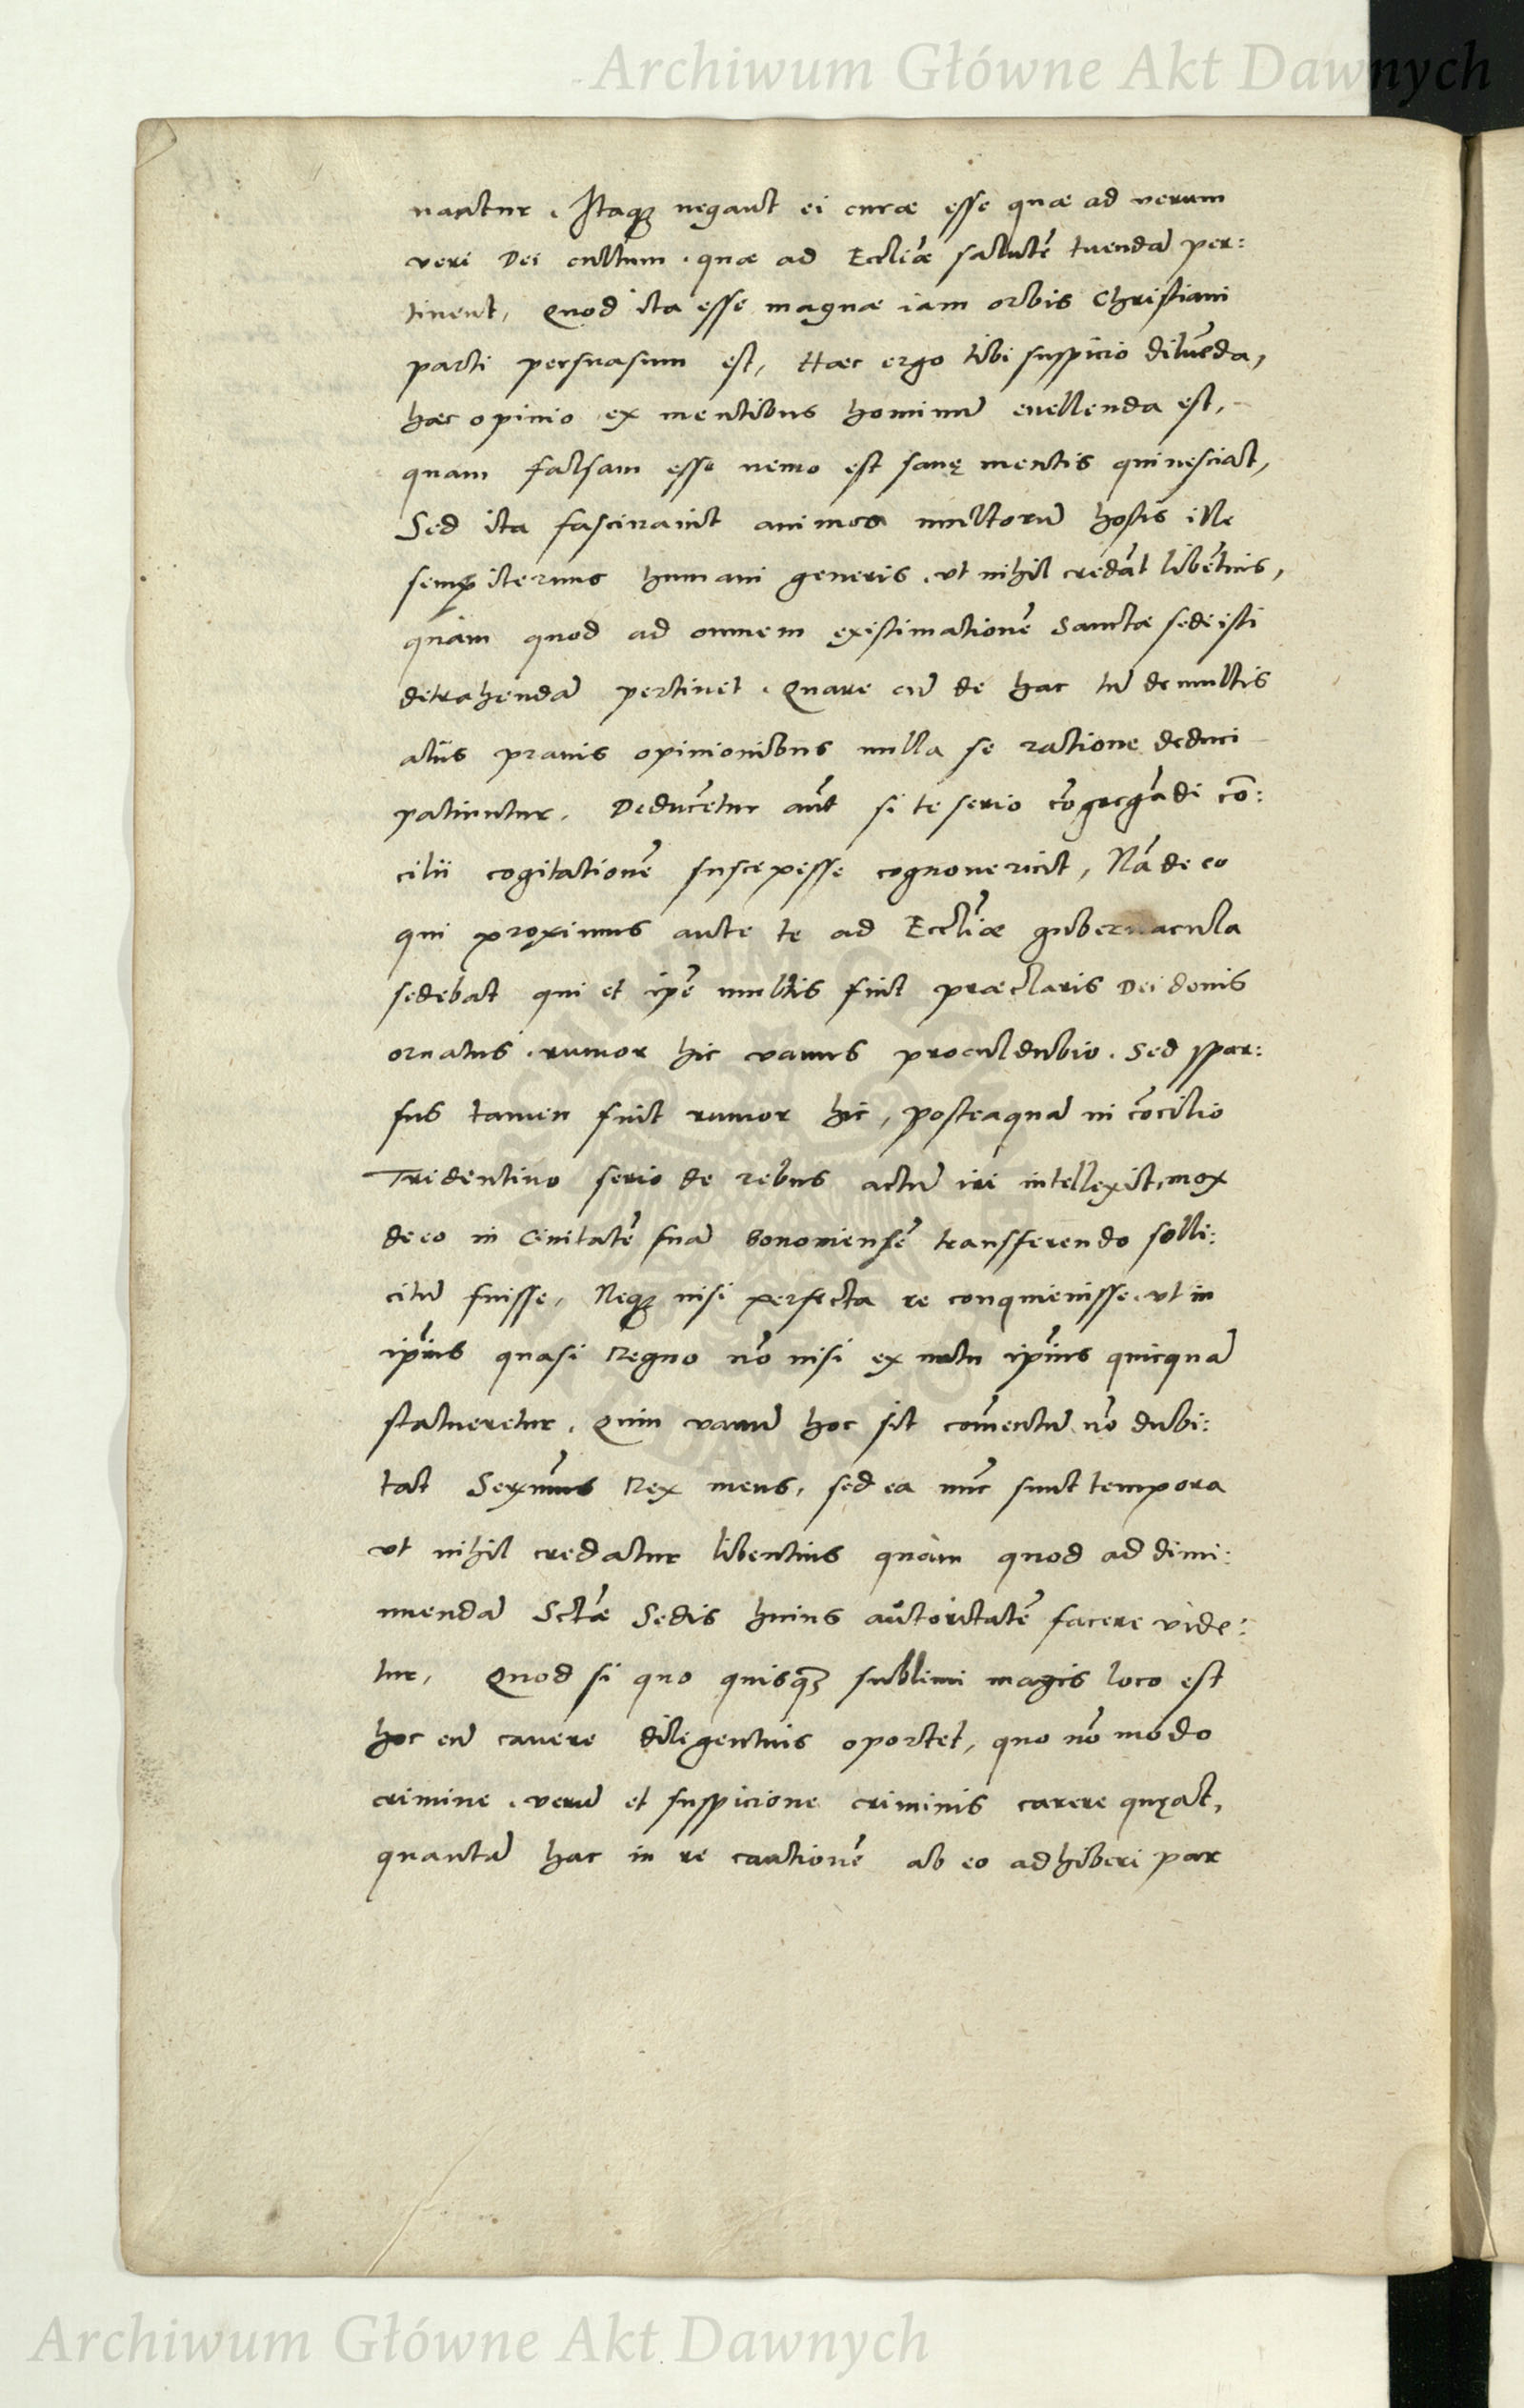 Archiwum Główne Akt Dawnych
Itaqꝫ negant ei curæ esse quæ ad verum
veri Dei cultum, quæ ad Eccliæ̃ salutẽ tuendã per:
tinent, Quod ita esse magnæ iam orbis Christiani
parti persuasum est, Hæc ergo tibi suspicio diluẽda,
hæc opinio ex mentibus hominũ euellenda est,
quam falsam esse nemo est sanę mentis qui nesciat,
Sed ita fascinauit animos multorũ hostis ille
sempiternus humani generis, vt nihil credãt libẽtius,
quàm quod ad omnem existimationẽ Sanctæ sedi isti
detrahendã pertinet. Quare cũ de hac tũ de multis
aliis prauis opinionibus nulla se ratione deduci
patiuntur, Deducẽtur aũt si te serio cõgregãdi cõ:
cilii cogitationẽ suscepesse cognouerint, Nã de eo
qui proximus ante te ad Eccliæ̃ gubernacula
sedebat qui et ipẽ multis fuit præclaris Dei donis
ornatus, rumor hic vanus proculdubio, Sed spar:
sus tamen fuit rumor hic, posteaquã in cõcilio
Tridentino serio de rebus actũ iri intellexit, mox
de eo in Ciuitatẽ suã Bononiensẽ transferendo solli:
citũ fuisse, Neqꝫ nisi perfecta re conquieuisse, vt in
ipĩus quasi Regno nõ nisi ex nutu ipĩus quicquã
statueretur, Quin vanũ hoc sit cõmentũ nõ dubi:
tat Serm̃us Rex meus, sed ea nũc sunt tempora
vt nihil credatur libentius quàm quod ad dimi:
nuendã Sctæ̃ Sedis huius autoritatẽ facere vide:
tur, Quod si quo quisqꝫ sublimi magis loco est
hoc eũ cauere diligentius oportet, quo nõ modo
crimine, verũ et suspicione criminis carere queat,
quantã hac in re cautionẽ ab eo adhiberi par
Archiwum Główne Akt Dawnych